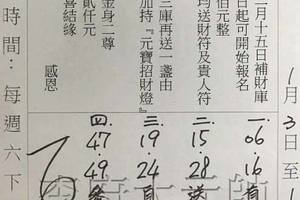 1月3日至1
月十五日補財庫
日起可開始報名
佰元整
均送財符及貴人符
三庫再送一盞由
加持『元寶招財燈』
金身二尊
貳仟元
喜結緣
感恩
一.06.16
二.15.28
三.19.24
四.47.49
時間：每週六下